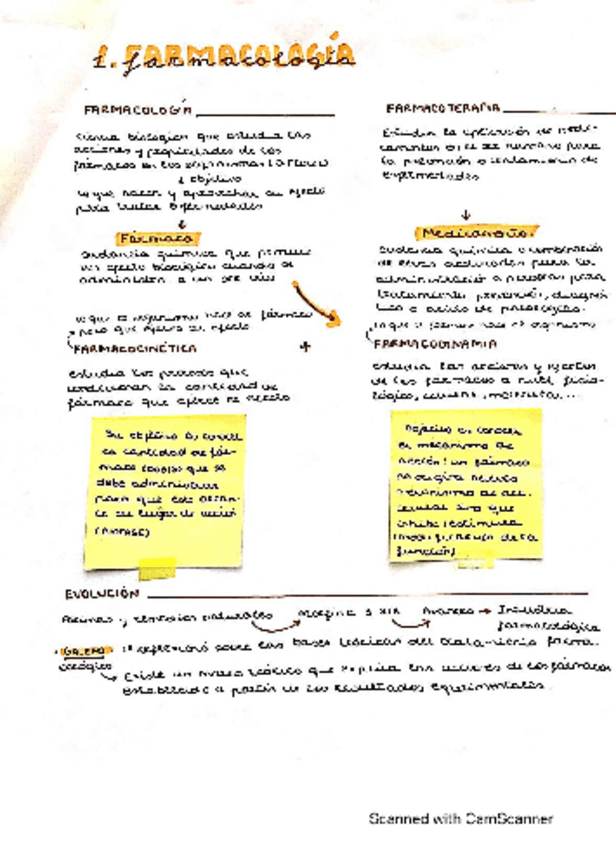 1. FARMACOLOGÍA
farmacología
FARMACOLOGÍA
ciencia biológica que estudia las
acciones y propiedades de los
fármacos en los organismos
↓ objetivo
para tratar enfermedades
↓
Fármaco
sustancia química que produce
un efecto biológico cuando se
administra a un ser vivo
lo que el organismo hace al fármaco
para que ejerza su efecto
FARMACOCINÉTICA +
estudia los procesos que
condicionan la cantidad de
fármaco que ejerce su efecto
Su objetivo es
la cantidad de fár-
maco (dosis) que se
debe administrar
para que este alcan-
ce su lugar de acción
(BIOFASE)
FARMACOTERAPIA
Estudia la aplicación de medi-
camentos en el ser humano para
la prevención o tratamiento de
enfermedades
↓
Medicamento
sustancia química o combinación
de estas adecuadas para la
administración a personas para
tratamiento, prevención, diagnós-
tico o alivio de patologías.
lo que el fármaco hace al organismo
FARMACODINAMIA
estudia las acciones y efectos
de los fármacos a nivel fisio-
lógico, celular, molecular...
Objetivo es conocer
el mecanismo de
acción: un fármaco
no origina nuevos
mecanismos
celular sino que
inhibe/estimula
de la
función)
EVOLUCIÓN
y remedios naturales Morfina S XIX Avances → Industria
farmacológica
GALENO reflexionó sobre las bases teóricas del tratamiento farma-
cológico
↳ Existe un marco teórico que explica las acciones de los fármacos
establecido a partir de los resultados experimentales.
Scanned with CamScanner